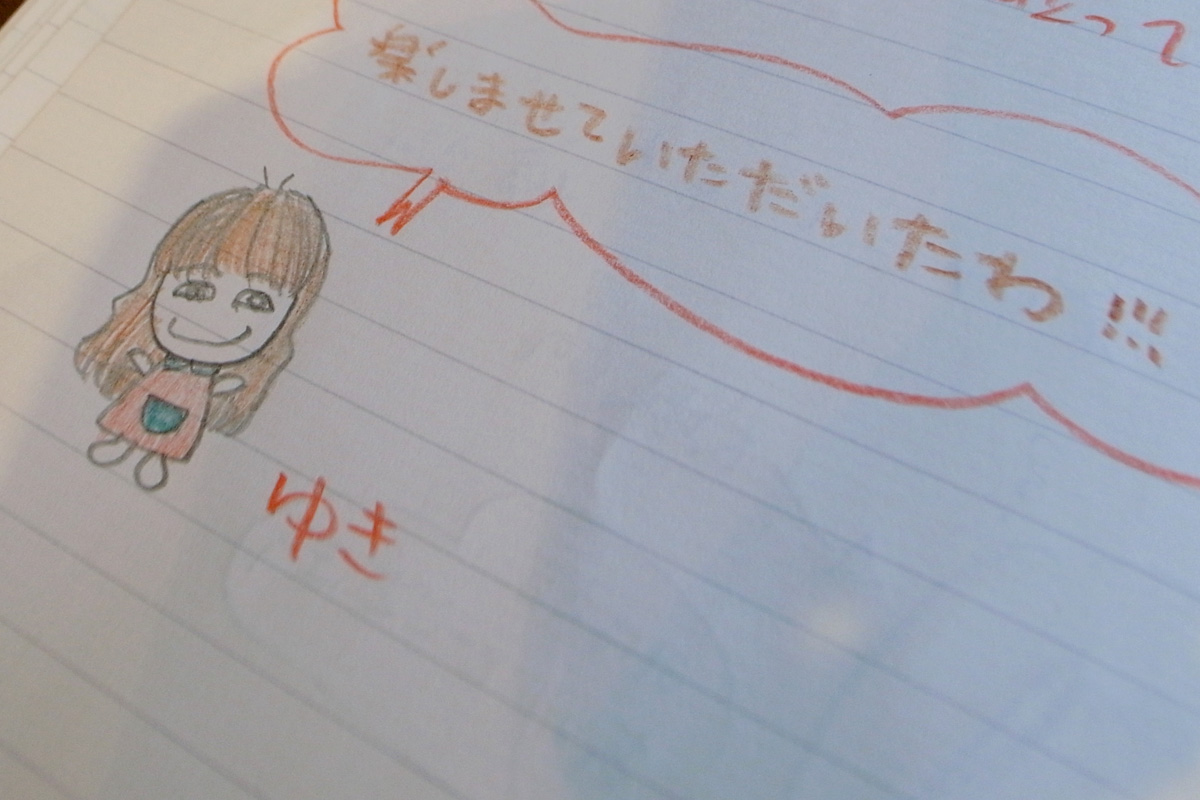 とって
楽しませていただいたわ!!!
ゆき